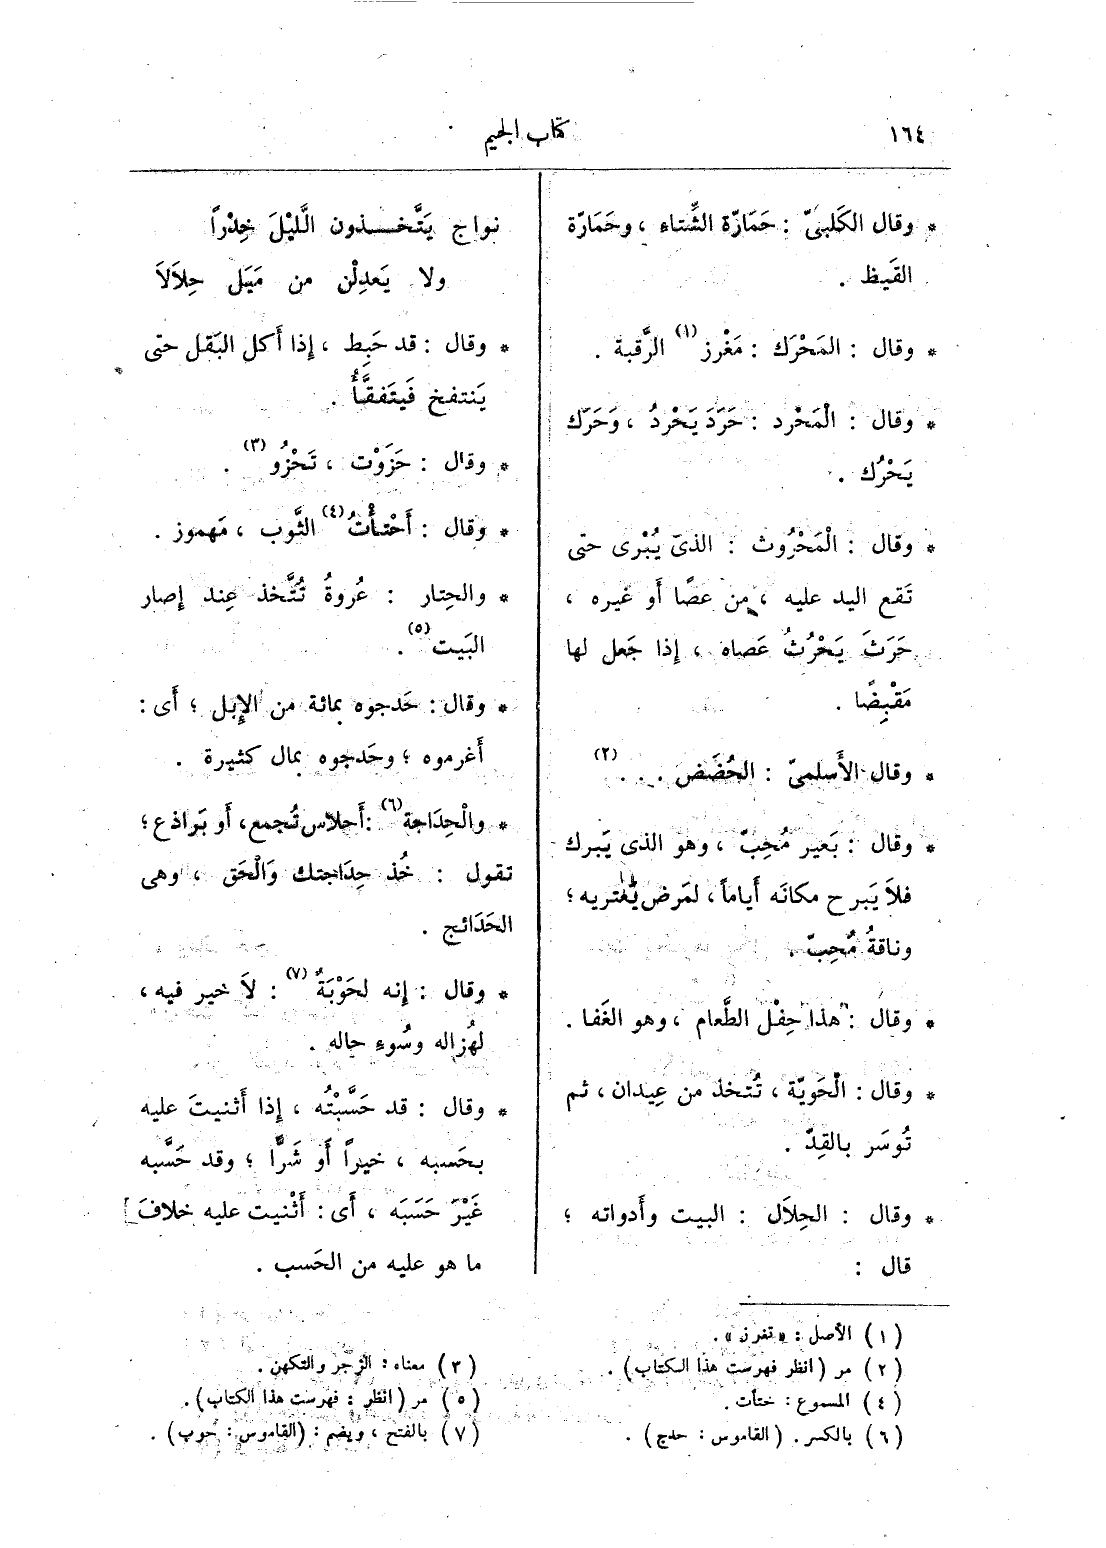 ١٦٤
كتاب الجيم
* وقال الكَلبىّ : حَمَارّة الشِّتاء ، وحَمَارّة
القَيظ .
* وقال : المَحْرَك : مَغْرز (١) الرَّقبة .
* وقال : الْمَحْرد : حَرَدَ يَحْردُ ، وَحَرَك
يَحْرُك .
* وقال : الْمَحْرُوث : الذى يُبْرى حتى
تَقع اليد عليه ، من عصًا أو غيره ،
حَرَثَ يَحْرُثُ عَصاه ، إذا جَعل لها
مَقْبِضًا .
* وقال الأَسلمىّ : الحُضَض . . . (٢)
* وقال : بَعير مُحِبّ ، وهو الذى يَبرك
فلاَ يَبرح مكانَه أَياماً ، لمَرض يَعْتريه ؛
وناقةُ مُحِبّ .
* وقال : هذا حِفْل الطَّعام ، وهو الغَفا .
* وقال : الْحَويّة ، تُتخذ من عِيدان ، ثم
تُوسَر بالقِدّ .
* وقال : الحِلاَل : البيت وأَدواته ؛
قال :
نواج يَتَّخــذون الَّليْلَ خِدْراً
ولا يَعدِلْن من مَيَل حِلاَلاَ
* وقال : قد حَبِط ، إذا أَكل البَقل حتى
يَنتفخ فَيتَفقَّأُ .
* وقال : حَزَوْت ، تَحْزُو (٣) .
* وقال : أَحْتأْتُ (٤) الثَّوب ، مَهموز .
* والحِتار : عُروةُ تُتَّخذ عِند إصار
البَيت (٥) .
* وقال : حَدجوه بمائة من الإِبل ؛ أَى :
أَغرموه ؛ وحَدجوه بمال كثيرة .
* والْحِدَاجة (٦) : أَحلاس تُجمع، أَو بَراذع ؛
تقول : خُذ حِدَاجتك وَالْحَق ، وهى
الحَدَائج .
* وقال : إنه لحَوْبَةٌ (٧) : لاَ خير فيه ،
لهُزاله وسُوء حاله .
* وقال : قد حَسَّبْتُه ، إذا أَثنيتَ عليه
بحَسبه ، خيراً أَو شَرًّا ؛ وقد حَسَّبه
غَيْرَ حَسَبَه ، أَى : أَثْنيت عليه خلافَ
ما هو عليه من الحَسب .
(١) الأصل : « تفرز » .
(٢) مر (انظر فهرست هذا الكتاب) .
(٣) معناه : الزجر والتكهن .
(٤) المسموع : حتأت .
(٥) مر (انظر : فهرست هذا الكتاب) .
(٦) بالكسر . (القاموس : حدج) .
(٧) بالفتح ، ويضم : (القاموس : حوب) .